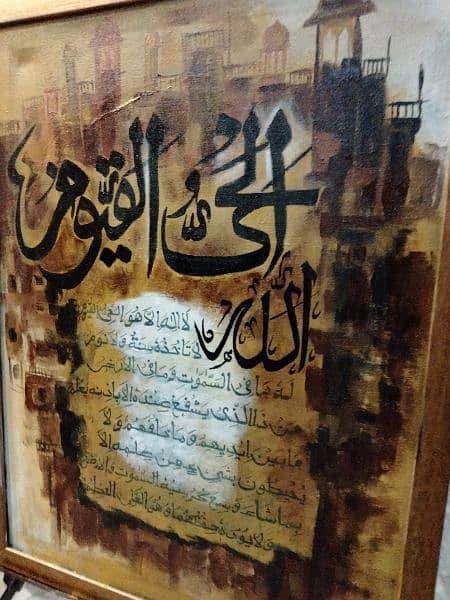 الحيُّ القيُّوم
الله
لا اله الا هو الحي القيوم
لا تاخذه سنة ولا نوم
له ما في السمٰوٰت وما في الارض
من ذا الذي يشفع عنده الا باذنه يعلم
ما بين ايديهم وما خلفهم ولا
يحيطون بشيء من علمه الا
بما شاء وسع كرسيه السمٰوٰت والارض
ولا يوده حفظهما وهو العلي العظيم